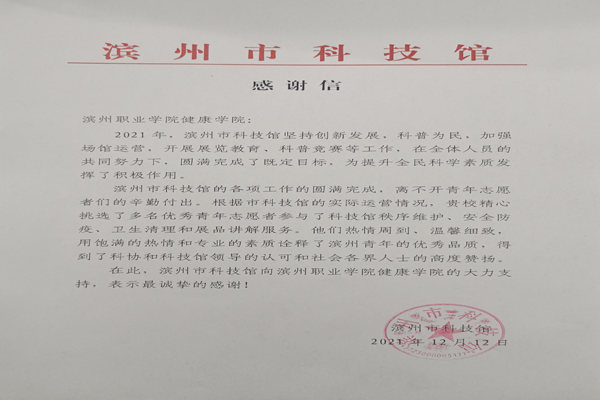 滨州市科技馆
感谢信
滨州职业学院健康学院:
2021年，滨州市科技馆坚持创新发展，科普为民，加强
场馆运营，开展展览教育、科普竞赛等工作，在全体人员的
共同努力下，圆满完成了既定目标，为提升全民科学素质发
挥了积极作用。
滨州市科技馆的各项工作的圆满完成，离不开青年志愿
者们的辛勤付出。根据市科技馆的实际运营情况，贵校精心
挑选了多名优秀青年志愿者参与了科技馆秩序维护、安全防
疫、卫生清理和展品讲解服务。他们热情周到、温馨细致，
用饱满的热情和专业的素质诠释了滨州青年的优秀品质，得
到了科协和科技馆领导的认可和社会各界人士的高度赞扬。
在此，滨州市科技馆向滨州职业学院健康学院的大力支
持，表示最诚挚的感谢！
滨州市科技馆
2021年12月12日